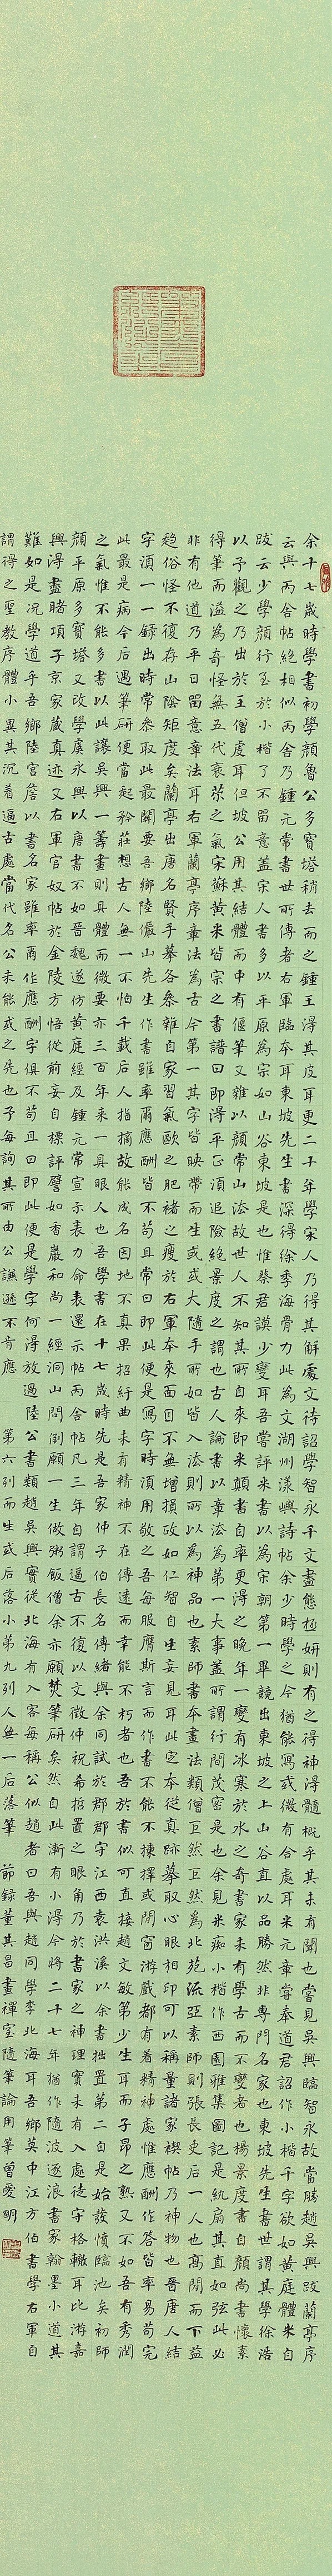 余十七歲時學書初學顏魯公多寶塔稍去而之鍾王得其皮耳更二十年學宋人乃得其解處文待詔學智永千文盡態極妍則有之得神得髓概乎其未有聞也嘗見吳興臨智永故當勝趙吳興跋蘭亭序
云與丙舍帖絕相似丙舍乃鍾元常書世所傳者右軍臨本耳東坡先生書深得徐季海骨力此為文湖州漾嶼詩帖余少時學之今猶能寫或微有合處耳米元章嘗奉道君詔作小楷千字欲如黃庭體米自
跋云少學顏行至於小楷了不留意蓋宋人書多以平原為宗如山谷東坡是也惟蔡君謨少變耳吾嘗評米書以為宋朝第一畢竟出東坡之上山谷直以品勝然非專門名家也東坡先生書世謂其學徐浩
以予觀之乃出於王僧虔耳但坡公用其結體而中有偃筆又雜以顏常山法故世人不知其所自來即米顛書自率更得之晚年一變有冰寒於水之奇書家未有學古而不變者也楊景度書自顏尚書懷素
得筆而溢為奇怪無五代衰苶之氣宋蘇黃米皆宗之書譜曰即得平正須追險絕景度之謂也古人論書以章法為第一大事蓋所謂行間茂密是也余見米癡小楷作西園雅集圖記是紈扇其直如弦此必
非有他道乃平日留意章法耳右軍蘭亭序章法為古今第一其字皆映帶而生或大隨手所如皆入法則所以為神品也素師書本畫法類僧巨然巨然為北苑流亞素師則張長史后一人也高閒而下益
趨俗怪不復存山陰矩度矣蘭亭出唐名賢手摹各參雜自家習氣歐之肥褚之瘦於右軍本來面目不無增損改如仁智自生妄見耳此定本從真跡摹取心眼相印可以稱量諸家禊帖乃神物也晉唐人結
字須一一錄出時常參取此最關要吾鄉陸儼山先生作書雖率爾應酬皆不苟且常曰即此便是寫字時須用敬之吾每服膺斯言而作書不能不揀擇或閒窗游戲都有着精神處惟應酬作答皆率易苟完
此最是病今后遇筆研便當起矜莊想古人無一不怕千載后人指摘故能成名因地不真果招紆曲未有精神不在傳遠而幸能不朽者也吾於書似可直接趙文敏第少生耳而子昂之熟又不如吾有秀潤
之氣惟不能多書以此讓吳興一籌畫則具體而微要亦三百年來一具眼人也吾學書在十七歲時先是吾家仲子伯長名傳緒與余同試於郡郡守江西袁洪溪以余書拙置第二自是始發憤臨池矣初師
顏平原多寶塔又改學虞永興以為唐書不如晉魏遂仿黃庭經及鍾元常宣示表力命表還示帖丙舍帖凡三年自謂逼古不復以文徵仲祝希哲置之眼角乃於書家之神理實未有入處徒守格轍耳比游嘉
興得盡睹項子京家藏真迹又右軍官奴帖於金陵方悟從前妄自標評譬如香嚴和尚一經洞山問倒願一生做粥飯僧余亦願焚筆研矣然自此漸有小得今將二十七年猶作隨波逐浪書家翰墨小道其
難如是況學道乎吾鄉陸宮詹以書名家雖率爾作應酬字俱不苟且曰即此便是學字何得放過陸公書類趙吳興實從北海有入客每稱公似趙者曰吾與趙同學李北海耳吾鄉莫中江方伯書學右軍自
謂得之聖教序體小異其沉着逼古處當代名公未能或之先也予每詢其所由公謙遜不肯應 第六列而生或后落小第九列人無一后落筆 節錄董其昌畫禪室隨筆論用筆曾愛明